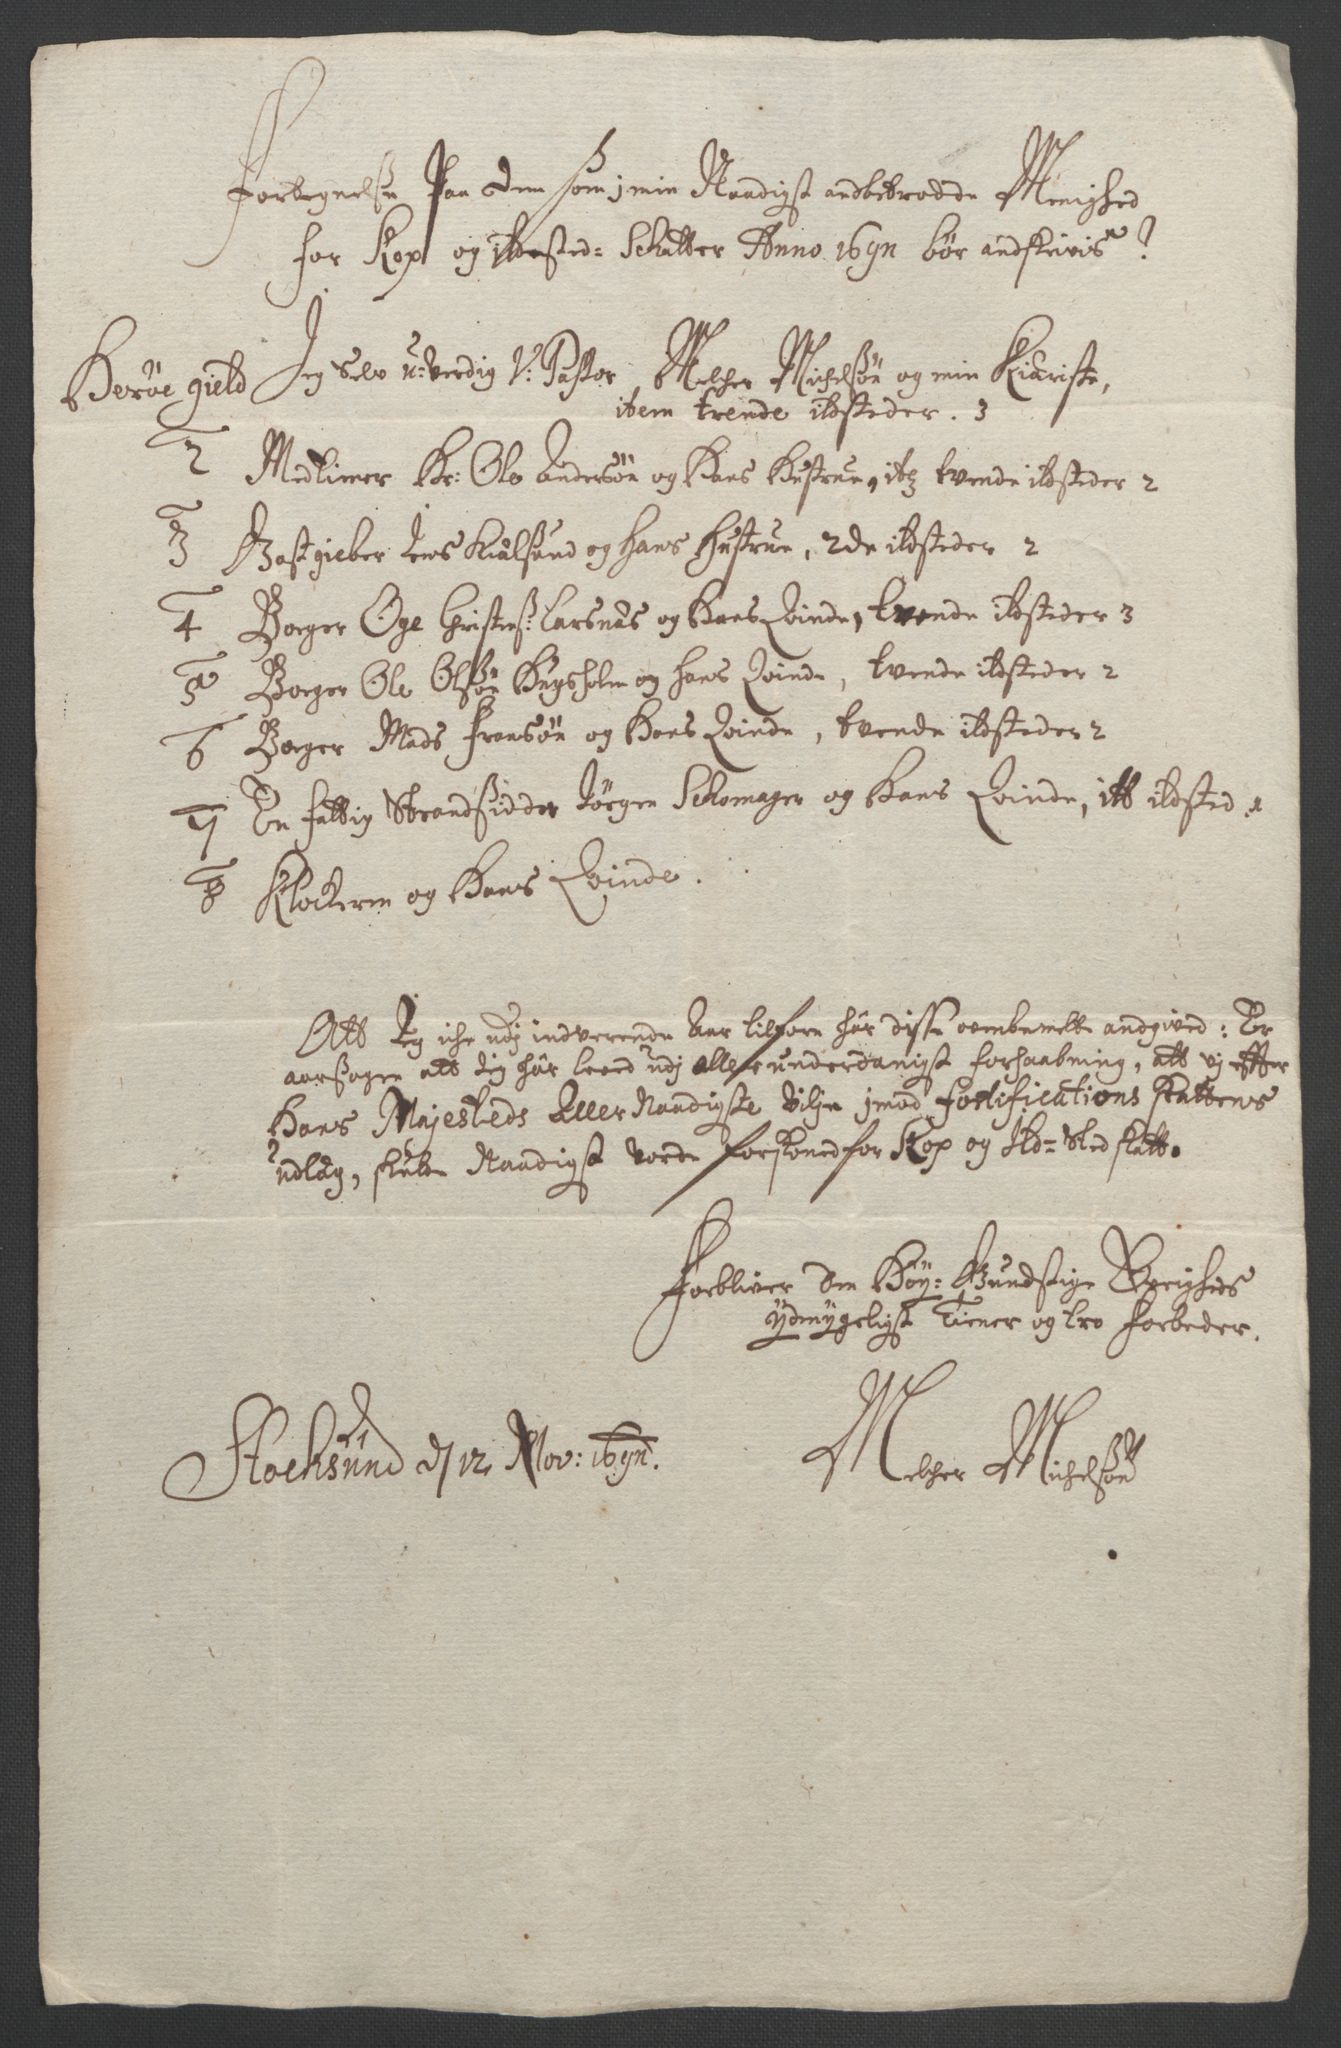 Fortegnelse Paa dem som j min Naadigst andbetrodde Menighed
for Kop og ildested: Schatter Anno 1691 bør andskrivis?
Herøe gield Jeg Selv u-verdig V: Pastor, Melcher Michelsøn og min Kiæriste,
item trende ildsteder. 3
2 Medtiener Hr: Ole Andersøn og Hans Hustrue, itz tvende ildsteder 2
3 Gastgieber Jens Kialsund og hans Hustrue, 2de ildsteder 2
4 Borger Oge Christens: Larsnæs og Hans Qvinde, tvende ildsteder 3
5 Borger Ole Olsøn Hugsholm og hans Qvinde, tvende ildsteder 2
6 Borger Mads Fransøn og Hans Qvinde, tvende ildsteder 2
7 En fattig Strandsidder Jørgen Schomager og Hans Qvinde, itt ildsted 1
8 Klockeren og Hans Qvinde.
Att Jeg iche udj indverende Aar tilforn har disse ovenbemelte andgived: Er
aarsagen att Jeg har leved udj aller underdanigst forhaabning, att vj effter
Hans Majesteds Aller Naadigste Vilje jmod fortifications skattens
udlæg, skulle Naadigst vorde forskoned for Kop og Ild-Sted skatt.
Forbliver den Høy: Gunstige Øvrigheds
ydmygeligst Tiener og tro forbeder.
Stocksund d 12 Nov: 1691.
Melcher Michelsøn